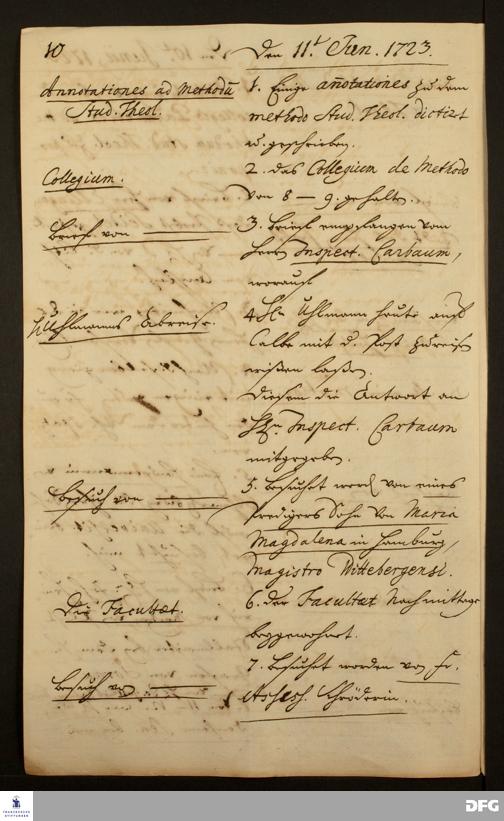 10
Den 11t. Jun. 1723.
Annotationes ad Methodū
Stud. Theol.
1. Einige annotationes zu dem
methodo Stud. Theol. dictirt
u. geschrieben.
Collegium.
2. das Collegium de Methodo
von 8 – 9. gehalten.
Brief von
3. Brief empfangen vom
Herrn Inspect. Carbaum,
worauf
H. Uhlmanns Abreise.
4. Hn Uhlmann heute auf
Calbe mit d. Post zu reisen
wißen laßen.
diesem die Antwort an
Hn Inspect. Carbaum
mitgegeben.
Besuch von
5. Besuchet word von eines
Predigers Sohn von Maria
Magdalena in Hamburg,
Magistro Wittebergensi.
Die Facultæt.
6. der Facultæt Nachmittags
beygewohnet.
Besuch von
7. Besuchet worden von Fr.
Assess. Schröderin.
FRANCKESCHE
STIFTUNGEN
DFG